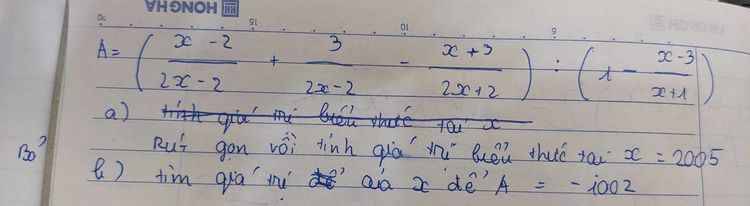 HONGHA
20 15 10 5
A = ( \frac{x - 2}{2x - 2} + \frac{3}{2x - 2} - \frac{x + 3}{2x + 2} ) : ( 1 - \frac{x - 3}{x + 1} )
a) tính giá trị biểu thức tại x
Bỏ
Rút gọn rồi tính giá trị biểu thức tại x = 2005
b) tìm giá trị để của x để A = - 1002